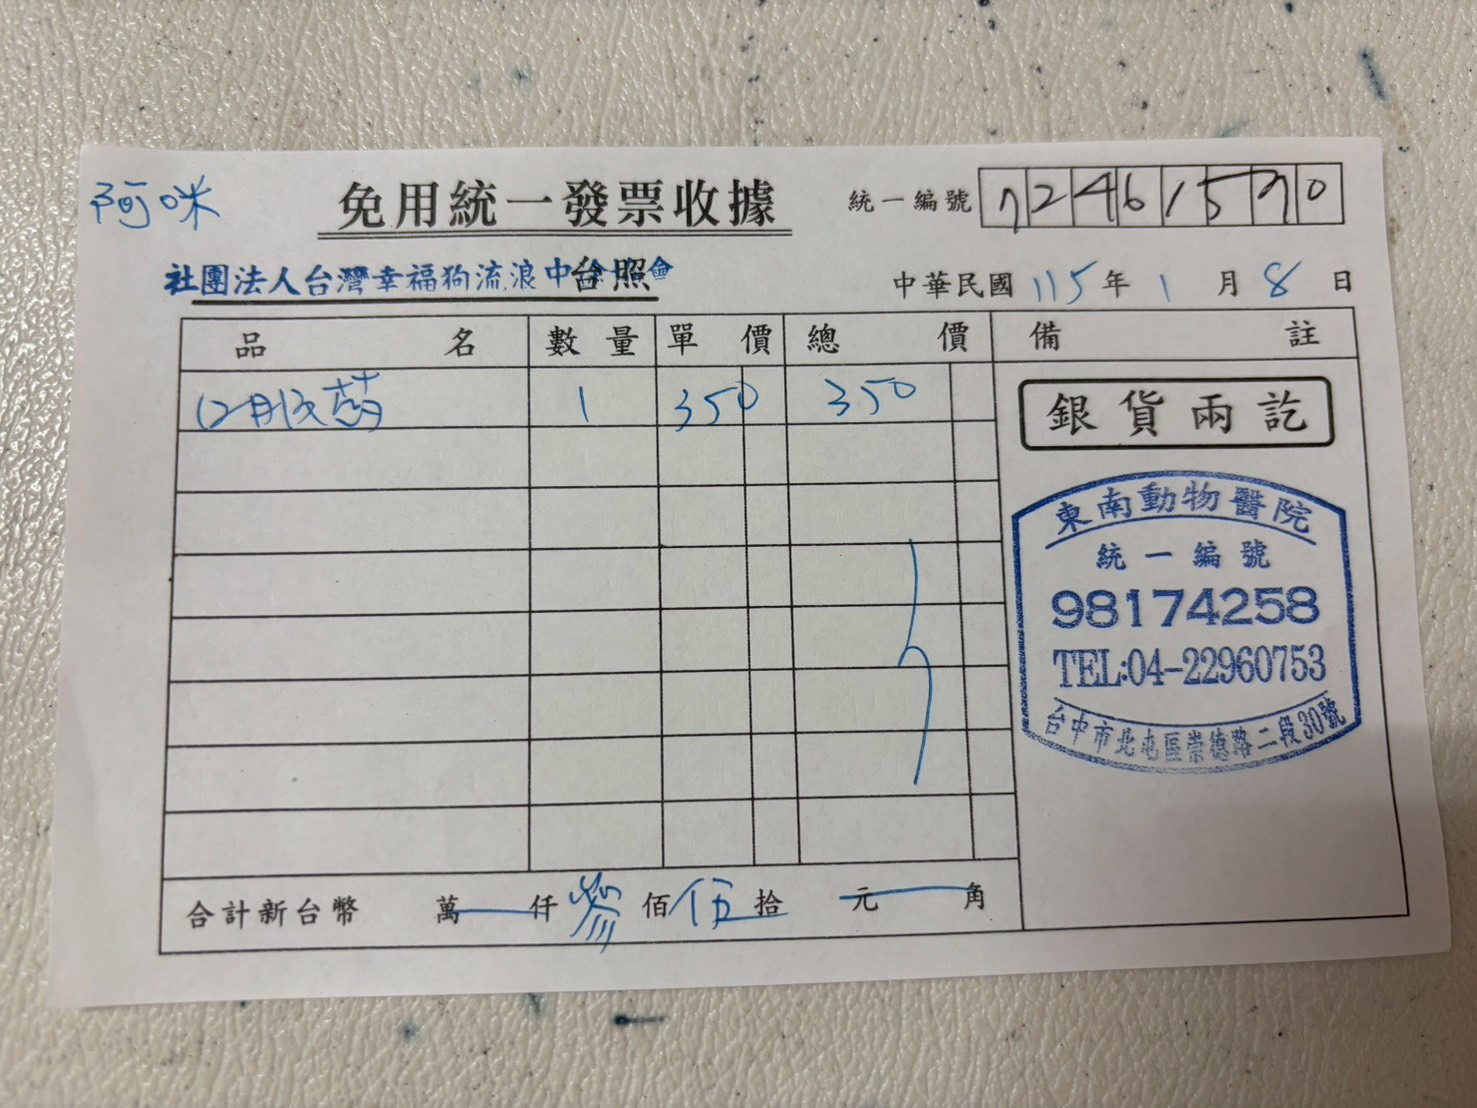 阿咪
免用統一發票收據
統一編號 72461570
社團法人台灣幸福狗流浪中 會
台照
中華民國 115 年 1 月 8 日
品名 數量 單價 總價 備註
口服藥 1 350 350
銀貨兩訖
東南動物醫院
統一編號
98174258
TEL:04-22960753
台中市北屯區崇德路二段30號
合計新台幣 萬 仟 參 佰 伍 拾 元 角